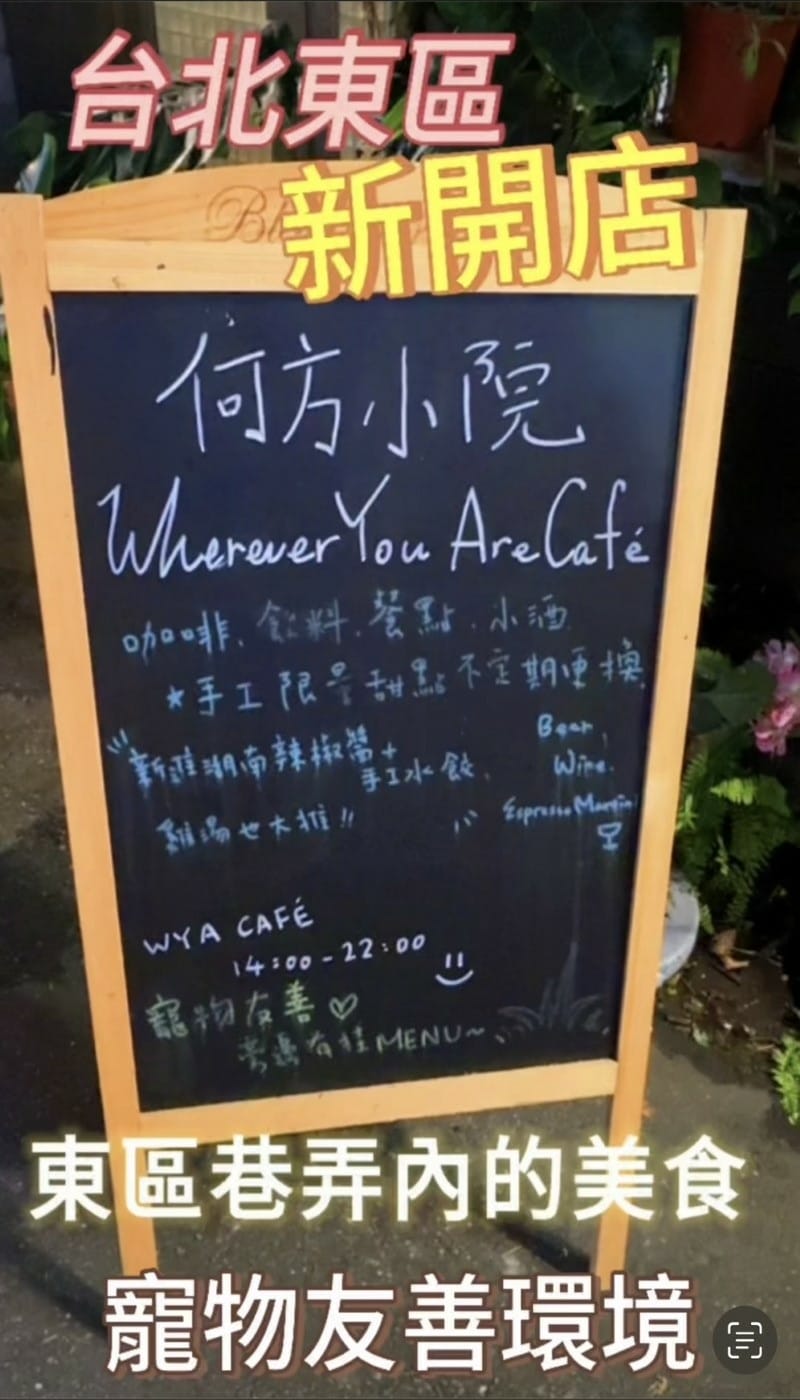 台北東區
新開店
何方小院
Wherever You Are Café
咖啡、飲料、餐點、小酒
★手工限量甜點不定期更換
新推湖南辣椒醬+
手工水餃、
雞湯也大推!!
Beer,
Wine.
Espresso Martini
WYA CAFÉ
14:00-22:00
寵物友善♡
旁邊有掛MENU~
東區巷弄內的美食
寵物友善環境